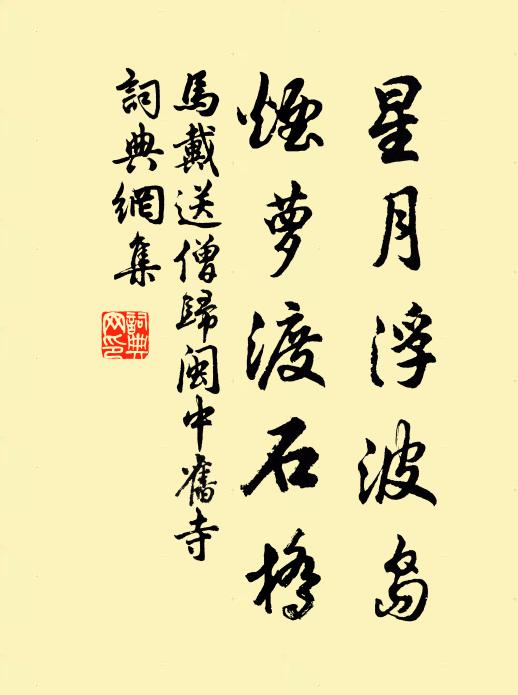 星月浮波岛
煙萝渡石橋
馬戴送僧歸閩中舊寺
詞典網集
詞典網印